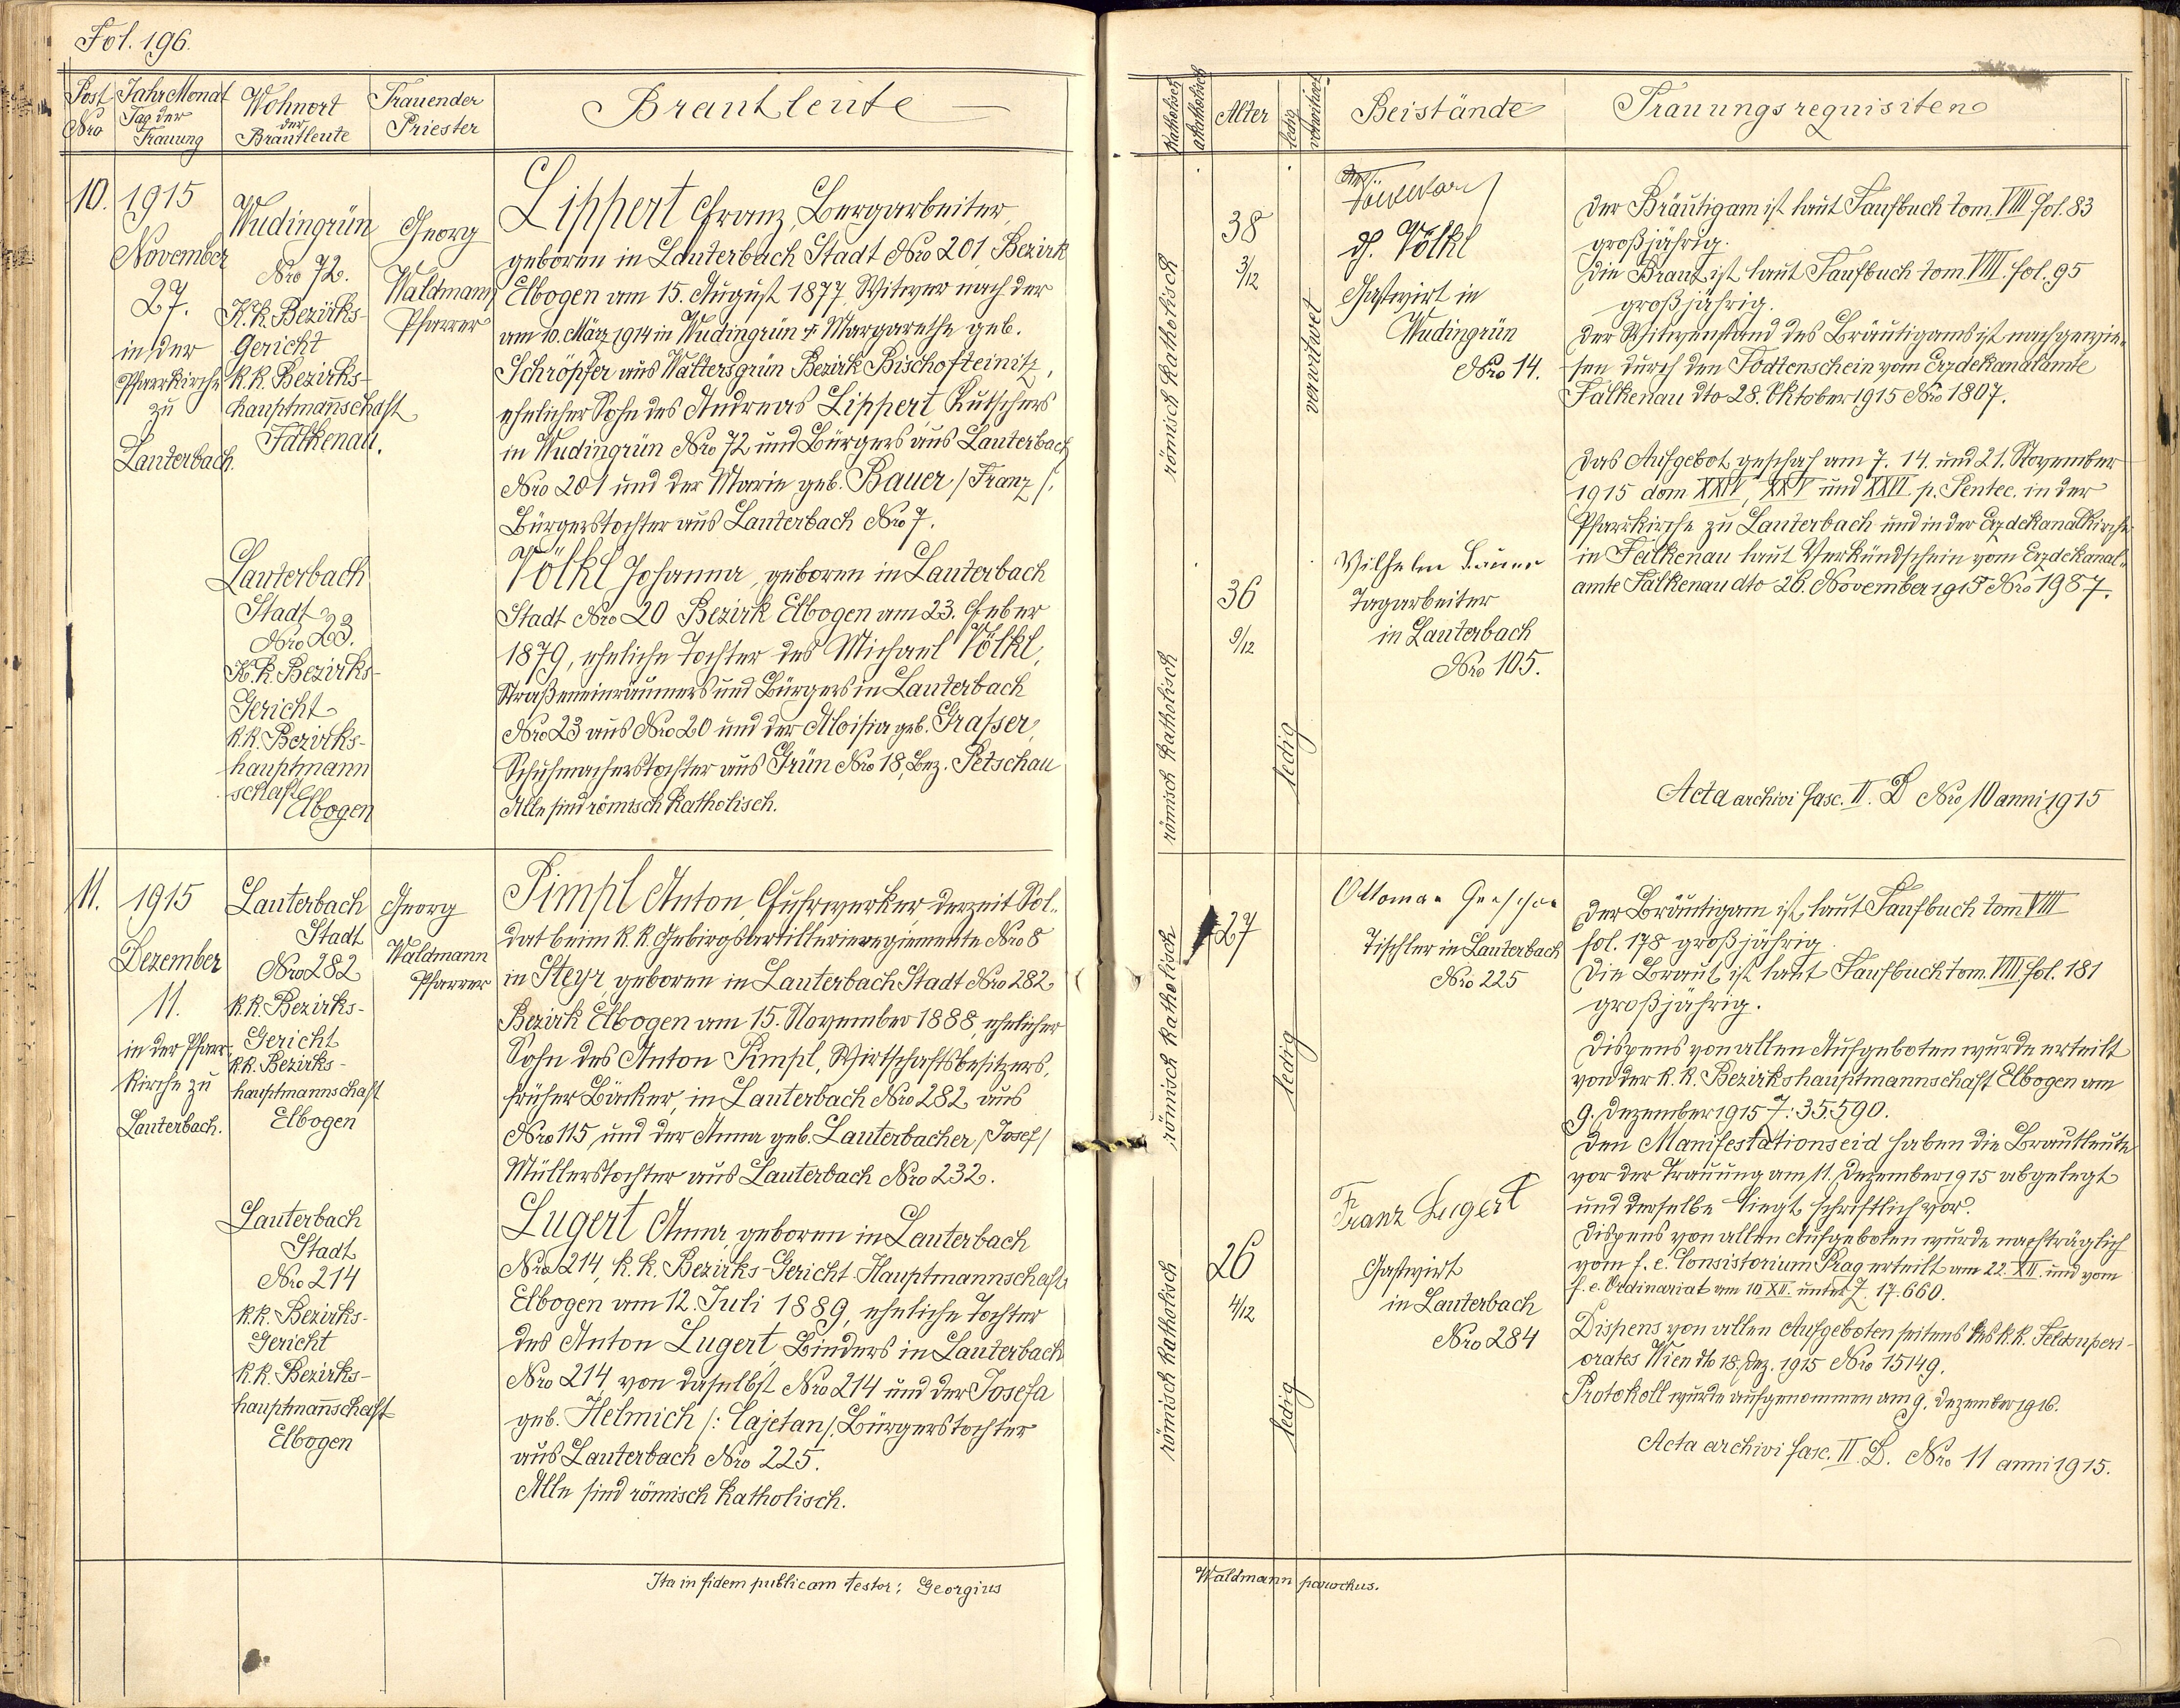 Fol. 196.
Post Nro
Jahr Monat Tag der Trauung
Wohnort der Brautleute
Trauender Priester
Brautleute
10.
1915
November
27.
in der
Pfarrkirche
zu
Lauterbach.
Wudingrün
Nro 72.
K.k. Bezirks-
Gericht
k.k. Bezirks-
hauptmannschaft
Falkenau.
Georg
Waldmann
Pfarrer
Lippert Franz, Bergarbeiter,
geboren in Lauterbach Stadt Nro 201 Bezirk
Elbogen am 15. August 1877, Witwer nach der
am 10. März 1914 in Wudingrün † Margarethe geb.
Schröpfer aus Waltersgrün Bezirk Bischofteinitz,
ehelicher Sohn des Andreas Lippert, Kutschers
in Wudingrün Nro 72 und Bürgers aus Lauterbach
Nro 201 und der Marie geb. Bauer /Franz/,
Bürgerstochter aus Lauterbach Nro 7.
Lauterbach
Stadt
Nro 23.
K.k. Bezirks-
Gericht
k.k. Bezirks-
hauptmann
schaft
Elbogen
Völkl Johanna, geboren in Lauterbach
Stadt Nro 20 Bezirk Elbogen am 23. Feber
1879, eheliche Tochter des Michael Völkl,
Straßeneinräumers und Bürgers in Lauterbach
Nro 23 aus Nro 20 und der Aloisia geb. Grasser,
Schuhmacherstochter aus Grün Nro 18, Bez. Petschau
Alle sind römisch katholisch.
11.
1915
Dezember
11.
in der Pfarr-
kirche zu
Lauterbach.
Lauterbach
Stadt
Nro 282
k.k. Bezirks-
Gericht
k.k. Bezirks-
hauptmannschaft
Elbogen
Georg
Waldmann
Pfarrer
Pimpl Anton, Fuhrwerker derzeit Sol-
dat beim k.k. Gebirgsartillerieregimente Nro 8
in Steyr, geboren in Lauterbach Stadt Nro 282
Bezirk Elbogen am 15. November 1888, ehelicher
Sohn des Anton Pimpl, Wirtschaftsbesitzers,
früher Bäcker, in Lauterbach Nro 282 aus
Nro 115 und der Anna geb. Lauterbacher /Josef/
Müllerstochter aus Lauterbach Nro 232.
Lauterbach
Stadt
Nro 214
k.k. Bezirks-
Gericht
k.k. Bezirks-
hauptmannschaft
Elbogen
Lugert Anna, geboren in Lauterbach
Nro 214, k.k. Bezirks-Gericht Hauptmannschaft
Elbogen am 12. Juli 1889, eheliche Tochter
des Anton Lugert, Binders in Lauterbach
Nro 214 von daselbst Nro 214 und der Josefa
geb. Helmich /: Cajetan/, Bürgerstochter
aus Lauterbach Nro 225.
Alle sind römisch katholisch.
Ita in fidem publicam testor: Georgius
katholisch
akatholisch
Alter
ledig
verwitwet
Beistände
Trauungsrequisiten
römisch katholisch
38
3/12
verwitwet
J. Völkl
Gastwirt in
Wudingrün
Nro 14.
Der Bräutigam ist laut Taufbuch tom. VIII fol. 83
großjährig.
Die Braut ist laut Taufbuch tom. VIII. fol. 95
großjährig.
Der Witwenstand des Bräutigams ist nachgewie-
sen durch den Todtenschein vom Erzdekanalamte
Falkenau dto 28. Oktober 1915 Nro 1807.
Das Aufgebot geschah am 7. 14. und 21. November
1915 dom XXIV, XXV und XXVI. p. Pentec. in der
Pfarrkirche zu Lauterbach und in der Erzdekanalkirche
in Falkenau laut Verkündschein vom Erzdekanal-
amte Falkenau dto 26. November 1915 Nro 1987.
römisch katholisch
36
9/12
ledig
Wilhelm Bauer
Tagarbeiter
in Lauterbach
Nro 105.
Acta archivi fasc. II. D Nro 10 anni 1915
römisch katholisch
27
ledig
Tischler in Lauterbach
Nro 225
Der Bräutigam ist laut Taufbuch tom VIII
fol. 178 großjährig.
Die Braut ist laut Taufbuch tom. VIII fol. 181
großjährig.
Dispens von allen Aufgeboten wurde erteilt
von der k.k. Bezirkshauptmannschaft Elbogen am
9. Dezember 1915 Z: 35590.
Den Manifestationseid haben die Brautleute
vor der Trauung am 11. Dezember 1915 abgelegt
und derselbe liegt schriftlich vor.
Dispens von allen Aufgeboten wurde nachträglich
vom f.e. Consistorium Prag erteilt am 22. XII. und vom
f.e. Ordinariat am 10 XII. unter Z. 17.660.
Dispens von allen Aufgeboten seitens des k.k. Feldsuperi-
orates Wien dto 18. Dez. 1915 Nro 15149.
Protokoll wurde aufgenommen am 9. Dezember 1916.
römisch katholisch
26
4/12
ledig
Franz Lugert
Gastwirt
in Lauterbach
Nro 284
Acta archivi fasc. II. D. Nro 11 anni 1915.
Waldmann parochus.